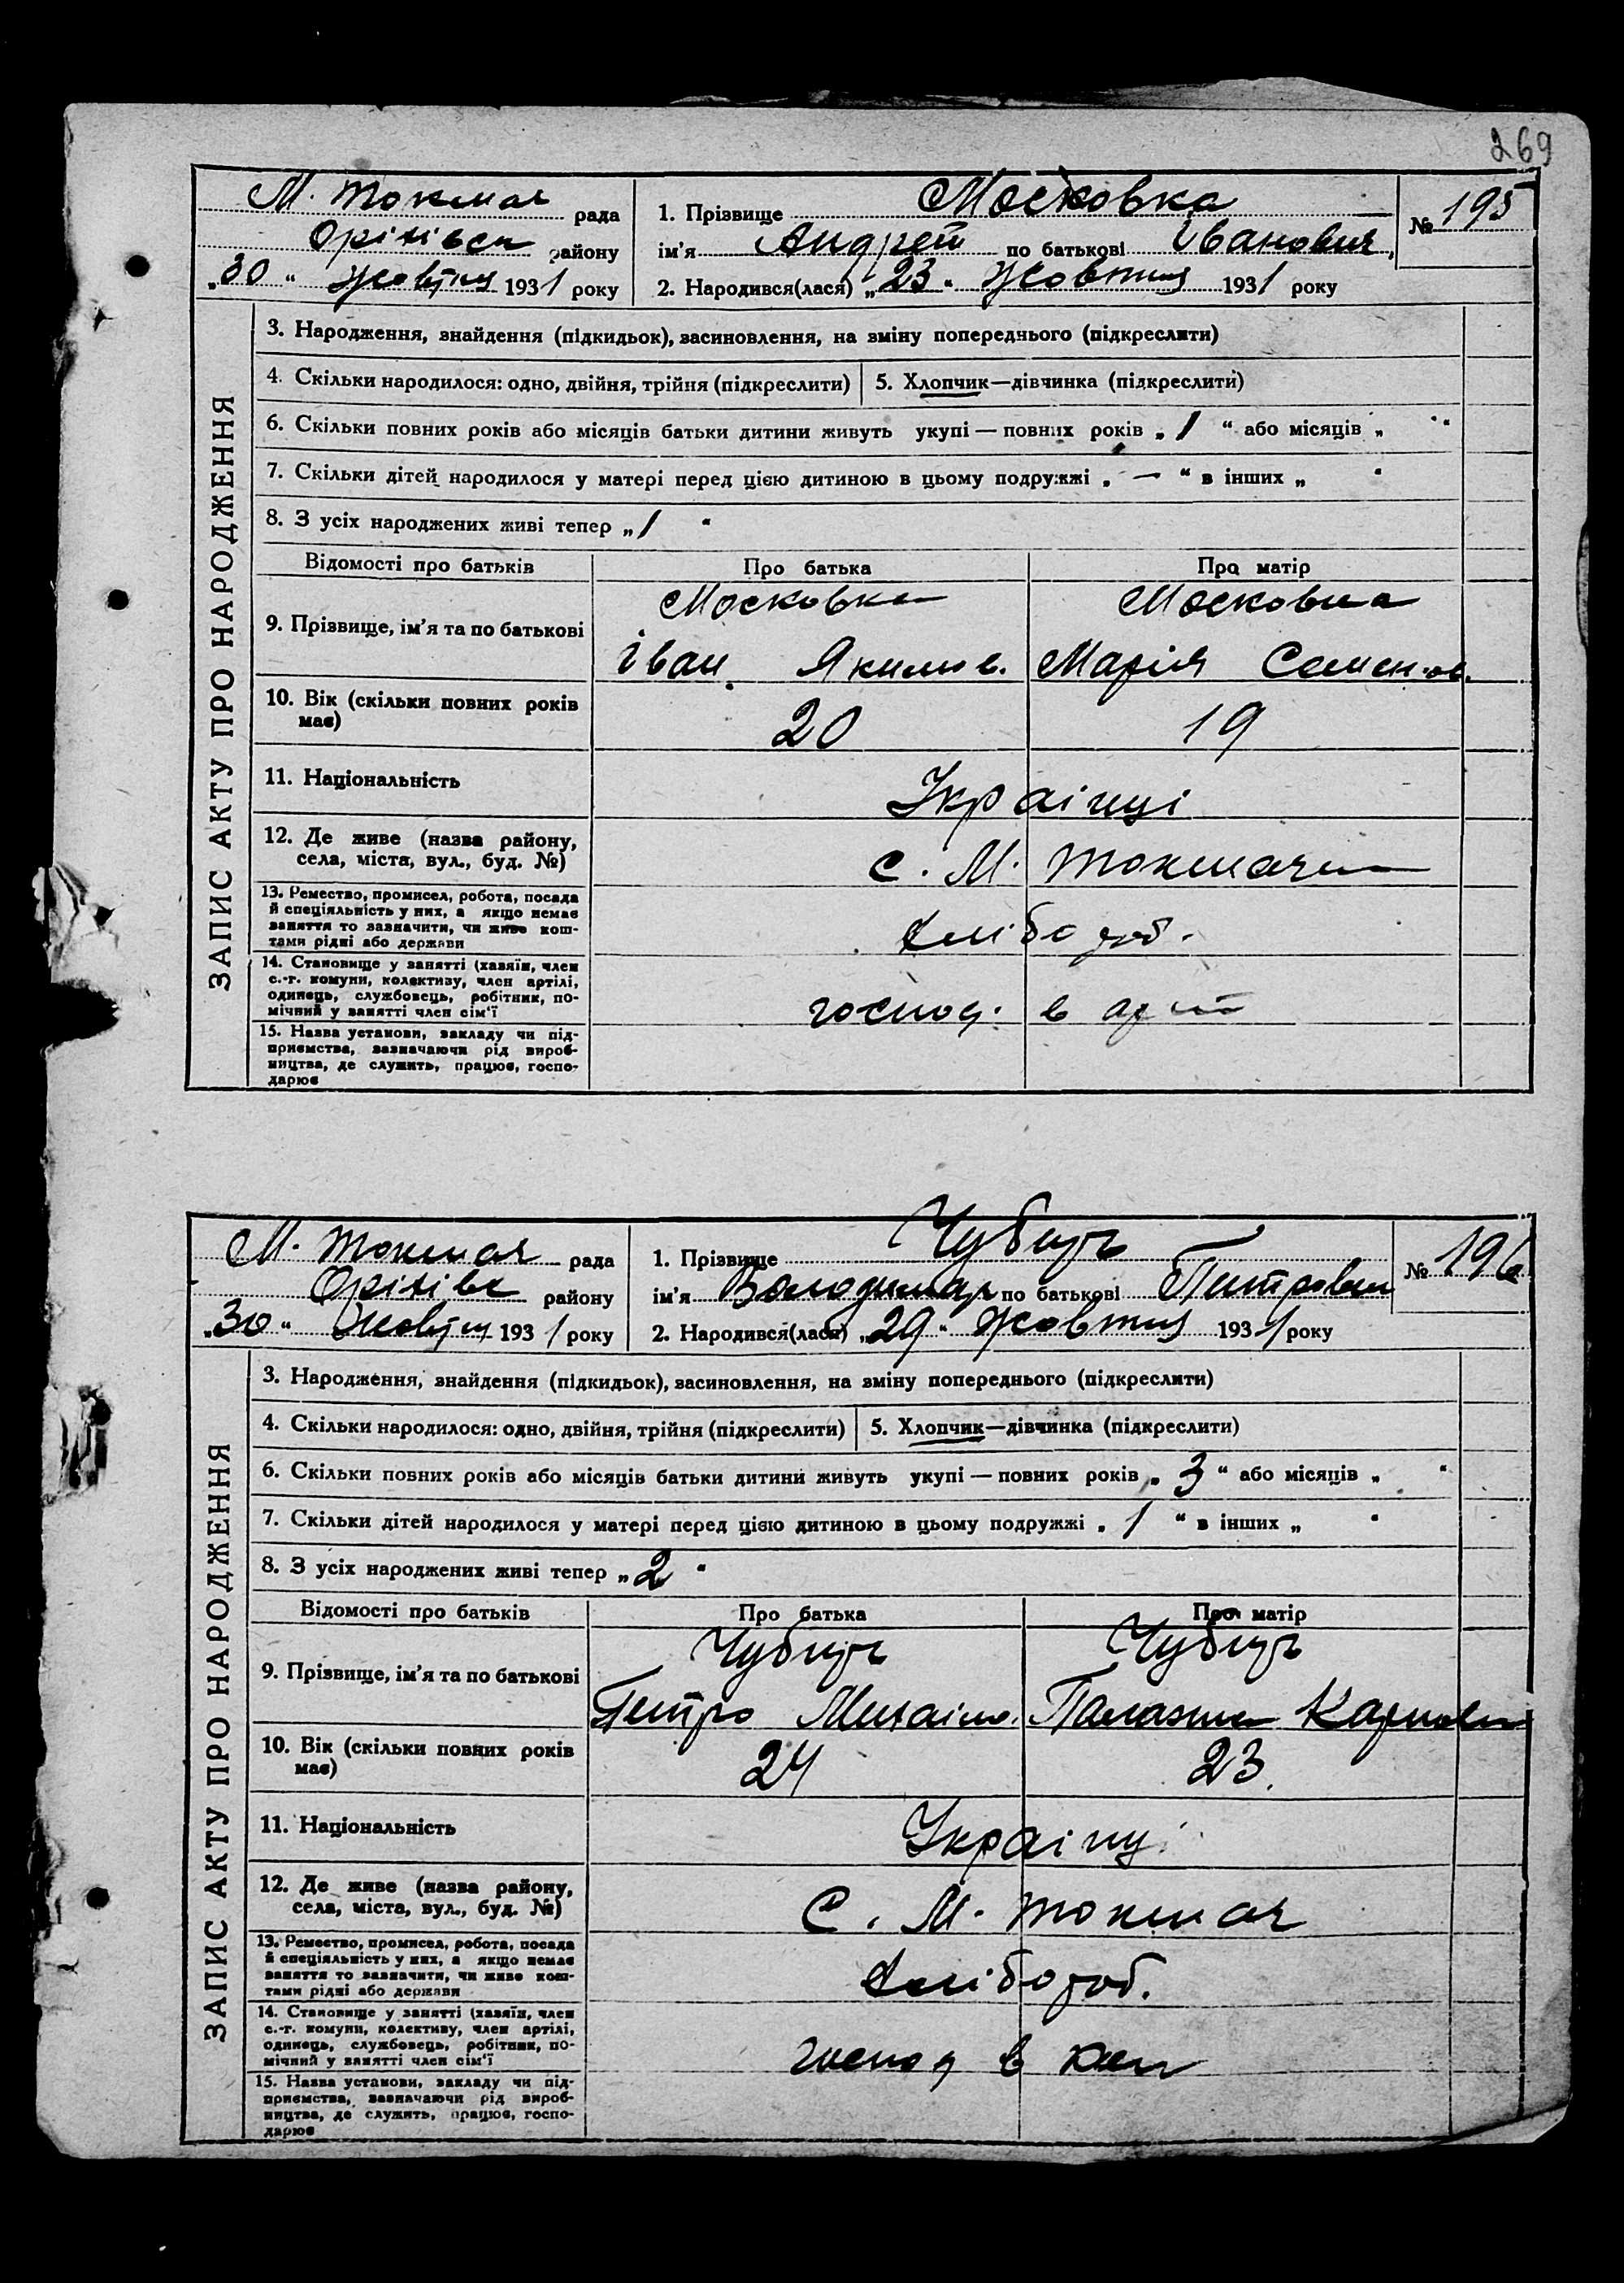 269
М. Токмач рада
Оріхівськ району
„30“ Жовтня 1931 року
1. Прізвище Московка
ім'я Андрей по батькові Іванович
2. Народився(лася) „23“ Жовтня 1931 року
№ 195
ЗАПИС АКТУ ПРО НАРОДЖЕННЯ
3. Народження, знайдення (підкидьок), засиновлення, на зміну попереднього (підкреслити)
4. Скільки народилося: одно, двійня, трійня (підкреслити) 5. Хлопчик—дівчинка (підкреслити)
6. Скільки повних років або місяців батьки дитини живуть укупі — повних років „1“ або місяців „ “
7. Скільки дітей народилося у матері перед цією дитиною в цьому подружжі „—“ в інших „ “
8. З усіх народжених живі тепер „1 “
Відомості про батьків Про батька Про матір
9. Прізвище, ім'я та по батькові
Московка Московка
Іван Якимов. Марія Семенов.
10. Вік (скільки повних років
має)
20 19
11. Національність
Українці
12. Де живе (назва району,
села, міста, вул., буд. №)
с. М. Токмачка
13. Ремество, промисел, робота, посада
й спеціяльність у них, а якщо немає
заняття то зазначити, чи живе кош-
тами рідні або держави
хлібороб.
14. Становище у занятті (хазяїн, член
с.-г. комуни, колективу, член артілі,
одинець, службовець, робітник, по-
мічний у занятті член сім'ї
господ. в арт
15. Назва установи, закладу чи під-
приємства, зазначаючи рід вироб-
ництва, де служить, працює, госпо-
дарює
М. Токмач рада
Оріхівс району
„30“ Жовтня 1931 року
1. Прізвище Чубець
ім'я Володимир по батькові Петрович
2. Народився(лася) „29“ Жовтня 1931 року
№ 196
ЗАПИС АКТУ ПРО НАРОДЖЕННЯ
3. Народження, знайдення (підкидьок), засиновлення, на зміну попереднього (підкреслити)
4. Скільки народилося: одно, двійня, трійня (підкреслити) 5. Хлопчик—дівчинка (підкреслити)
6. Скільки повних років або місяців батьки дитини живуть укупі — повних років „3“ або місяців „ “
7. Скільки дітей народилося у матері перед цією дитиною в цьому подружжі „1“ в інших „ “
8. З усіх народжених живі тепер „2“
Відомості про батьків Про батька Про матір
9. Прізвище, ім'я та по батькові
Чубець Чубець
Петро Михайл. Палажка Карпов
10. Вік (скільки повних років
має)
24 23.
11. Національність
Українці
12. Де живе (назва району,
села, міста, вул., буд. №)
С. М. Токмач
13. Ремество, промисел, робота, посада
й спеціяльність у них, а якщо немає
заняття то зазначити, чи живе кош-
тами рідні або держави
хлібороб.
14. Становище у занятті (хазяїн, член
с.-г. комуни, колективу, член артілі,
одинець, службовець, робітник, по-
мічний у занятті член сім'ї
господ в
15. Назва установи, закладу чи під-
приємства, зазначаючи рід вироб-
ництва, де служить, працює, госпо-
дарює